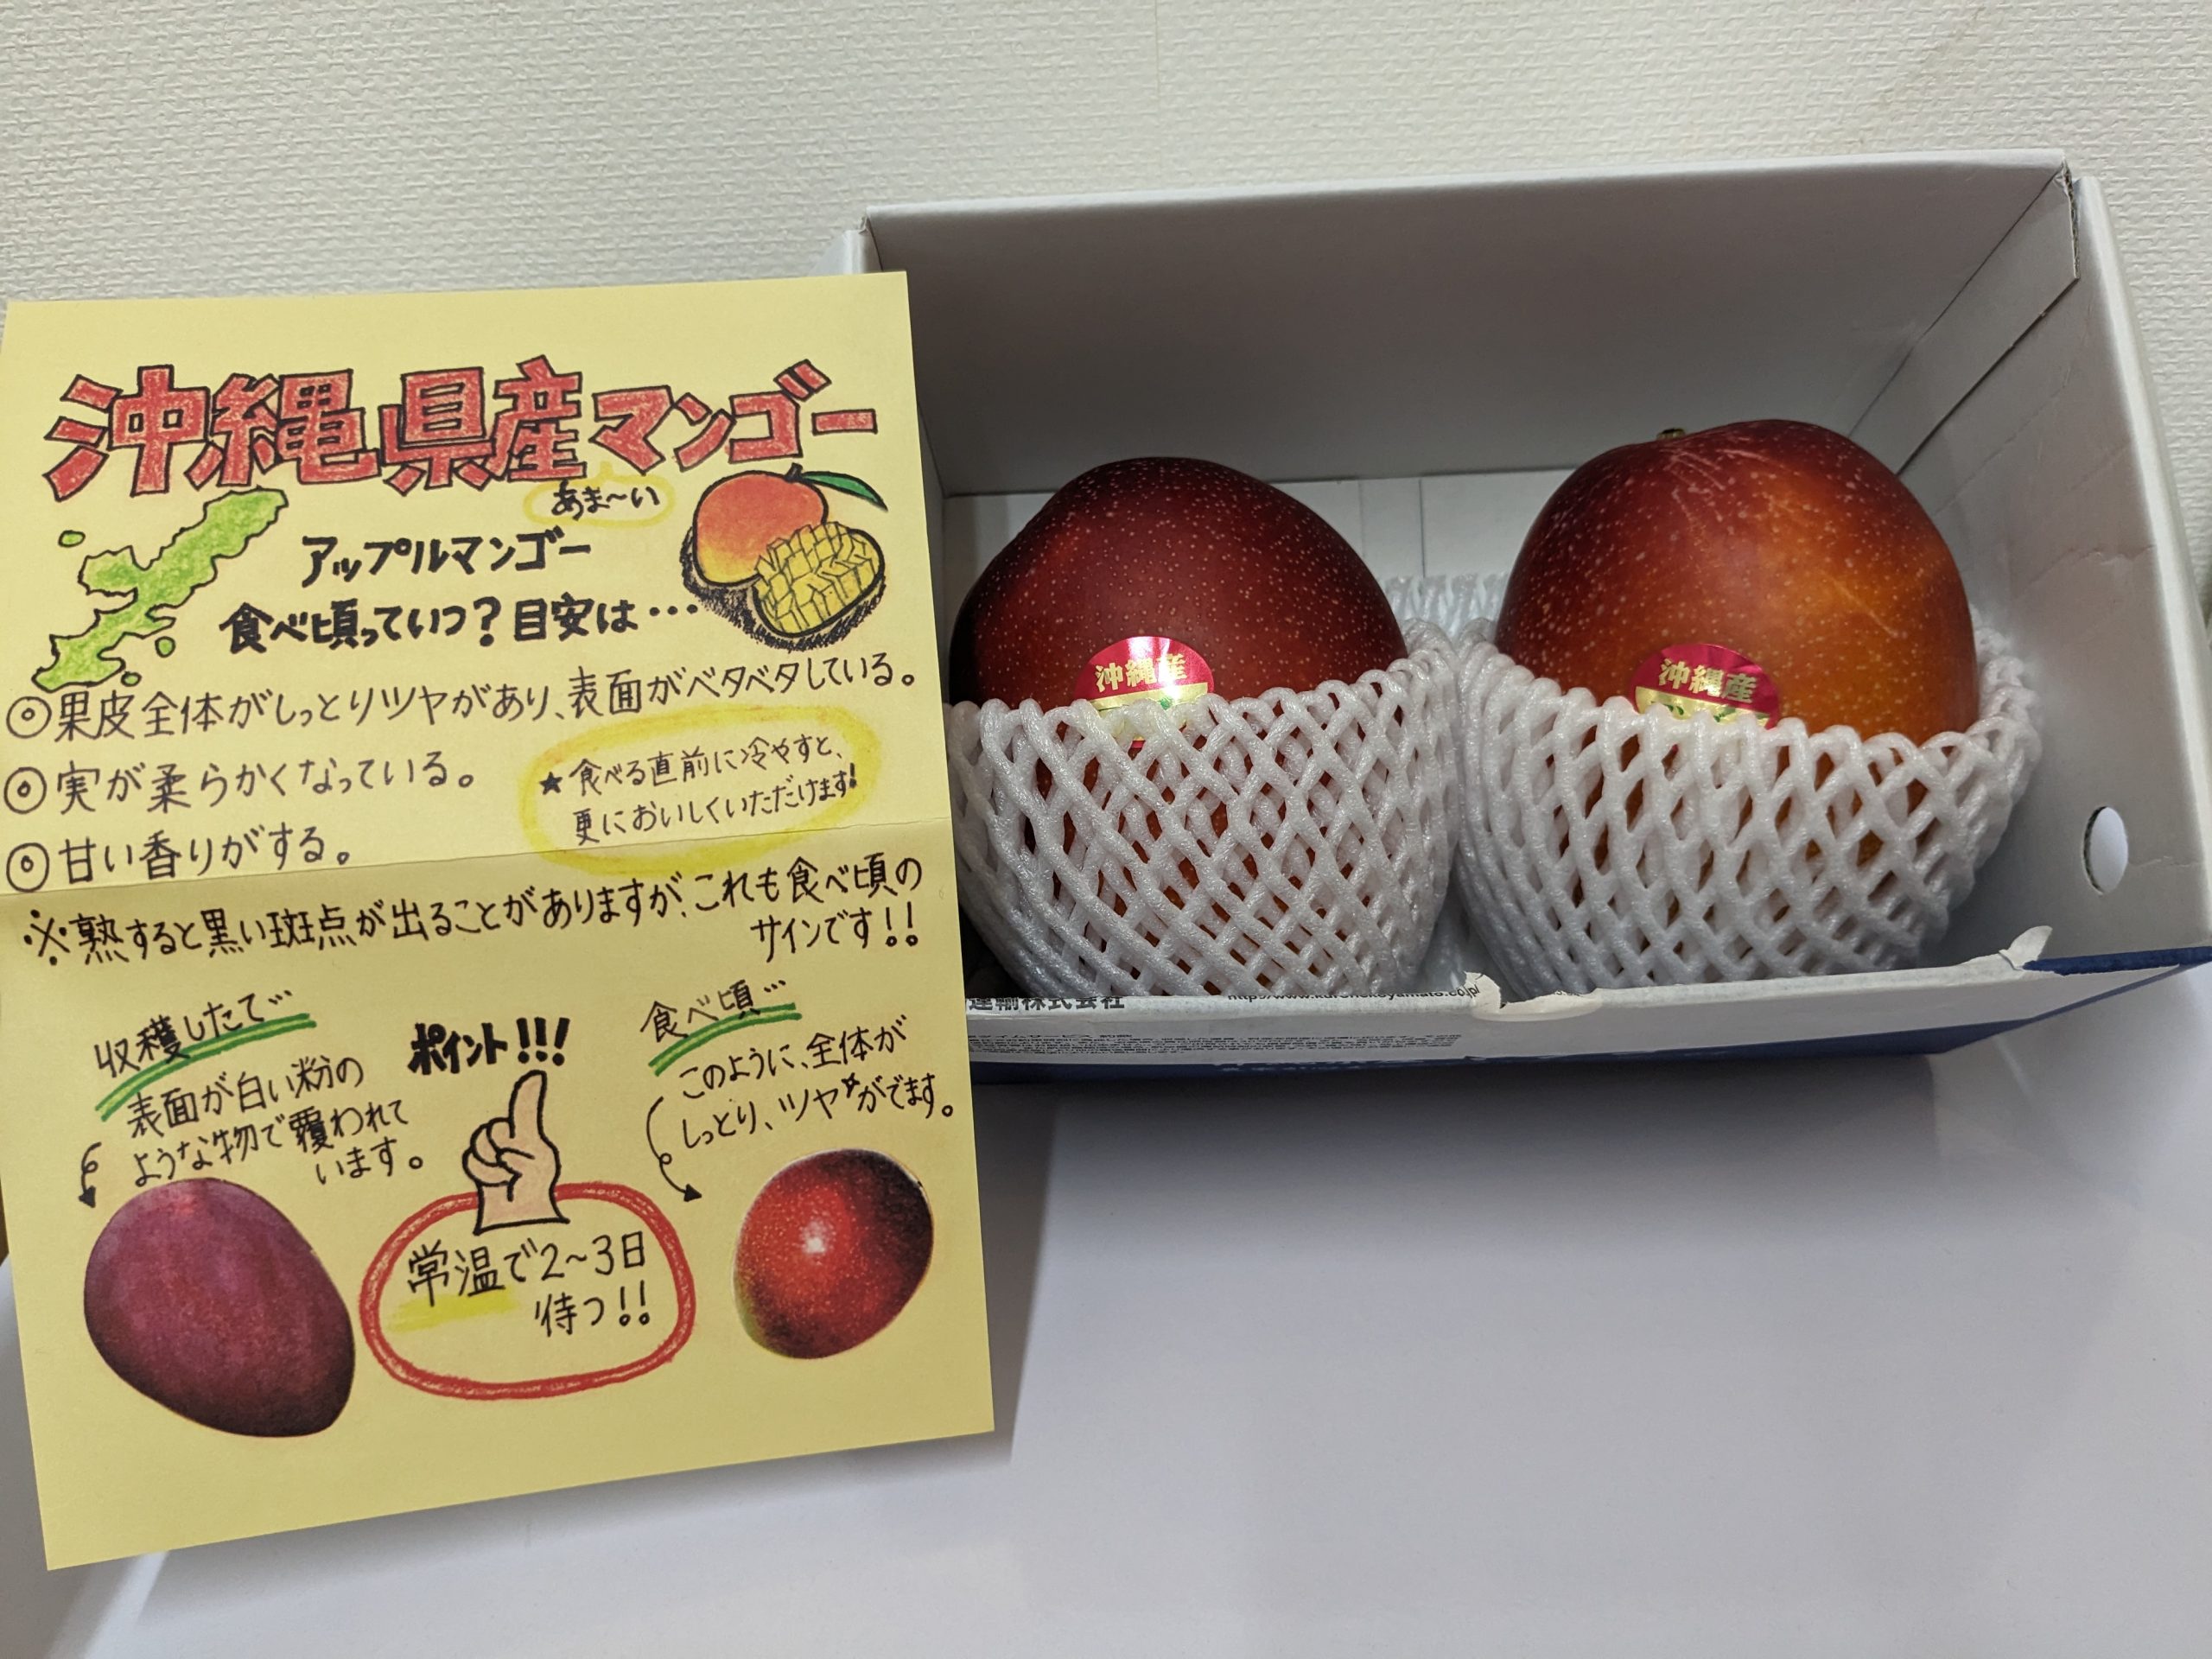 沖縄県産マンゴー
あま～い
アップルマンゴー
食べ頃っていつ?目安は…
◎果皮全体がしっとりツヤがあり、表面がベタベタしている。
◎実が柔らかくなっている。
◎甘い香りがする。
★食べる直前に冷やすと、
更においしくいただけます!
※熟すると黒い斑点が出ることがありますが、これも食べ頃の
サインです!!
収穫したて…
表面が白い粉の
ような物で覆われて
います。
ポイント!!!
常温で2~3日
待つ!!
食べ頃…
このように、全体が
しっとり、ツヤがでます。
沖縄産
沖縄産
運輸株式会社